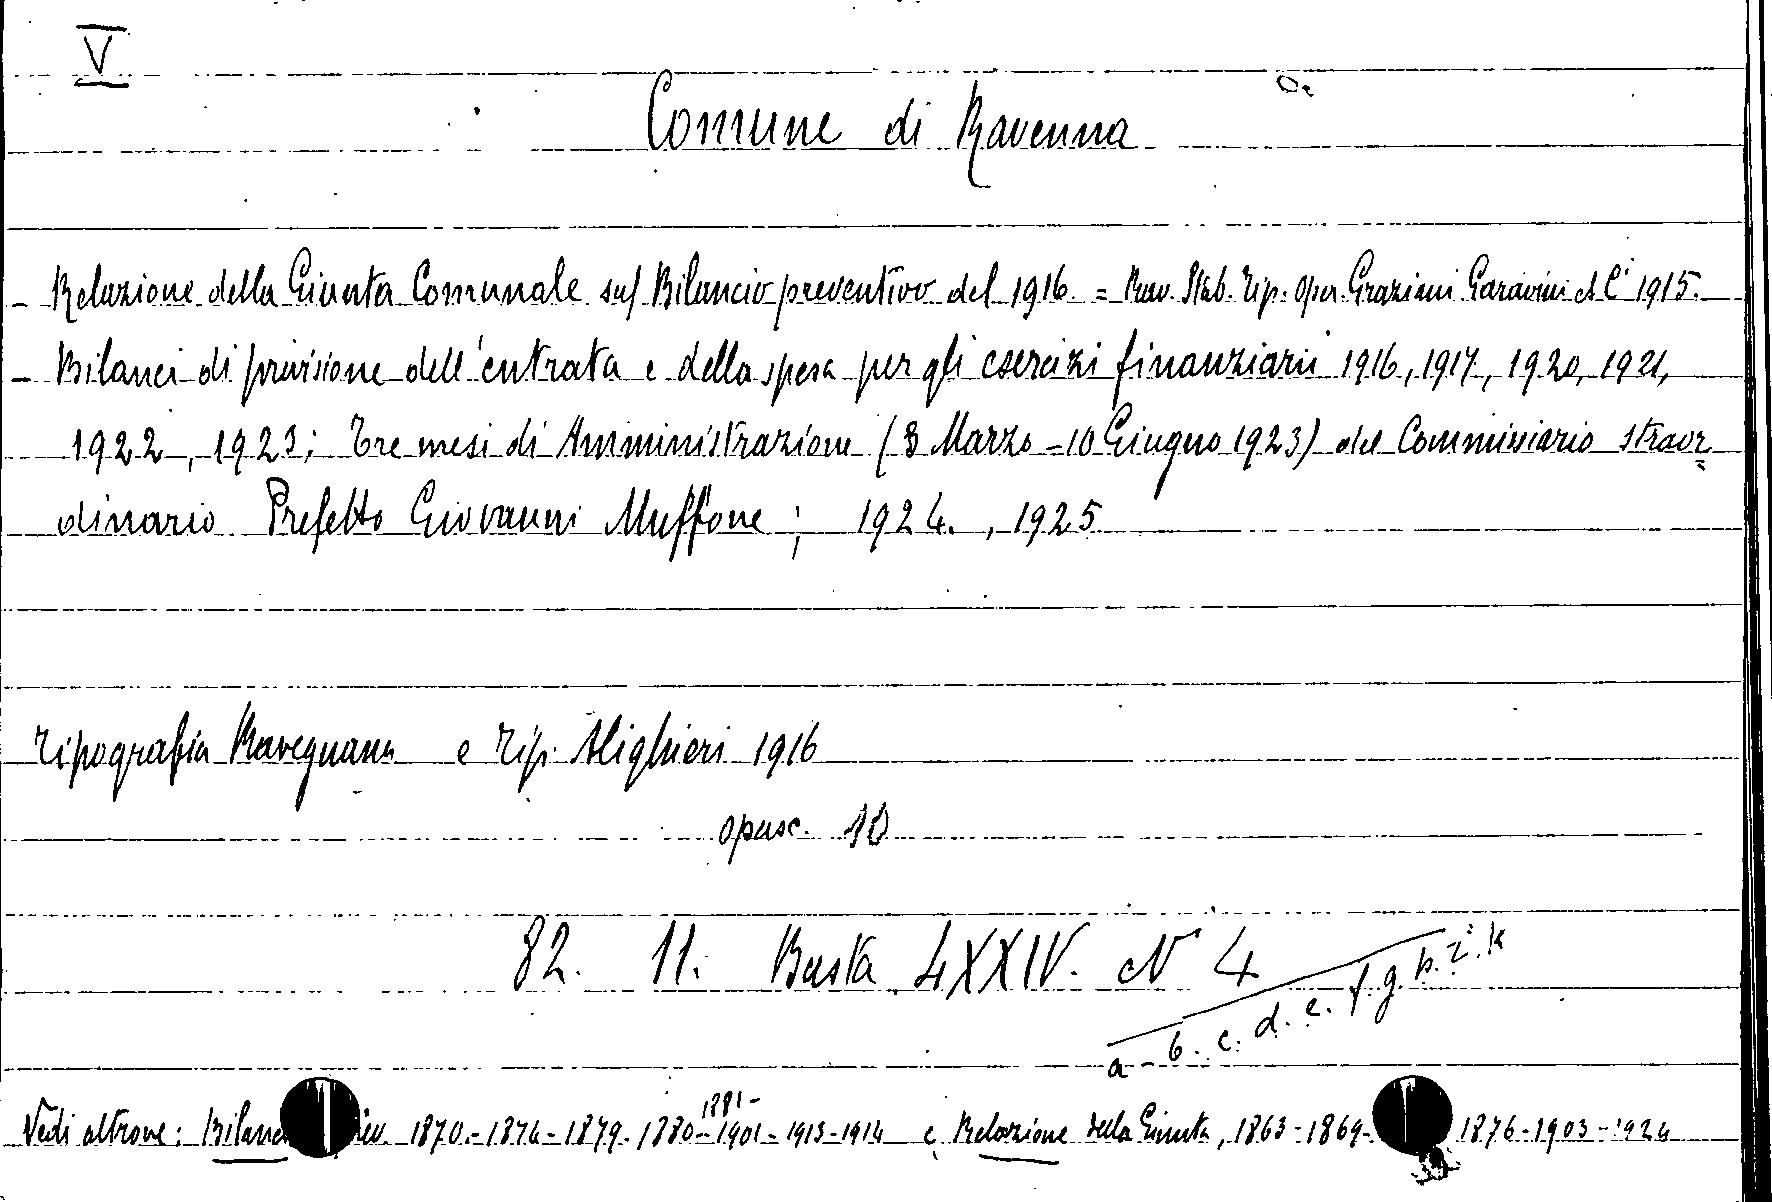 V
Comune di Ravenna
- Relazione della Giunta Comunale sul Bilancio preventivo del 1916. = Rav. Stab. Tip. Oper. Graziani Garavini e C.i 1915.
- Bilanci di previsione dell'entrata e della spesa per gli esercizi finanziarii 1916, 1917, 1920, 1921,
1922, 1923; Tre mesi di Amministrazione (8 Marzo - 10 Giugno 1923) del Commissario straor=
dinario Prefetto Giovanni Muffone; 1924., 1925
Tipografia Ravegnana e Tip. Alighieri 1916
opusc. 10
82. 11. Busta LXXIV. N 4
a - b. c. d. e. f. g. h. i. k
1881 -
Vedi altrove: Bilanci 1870. - 1874 - 1879. 1880 - 1901 - 1913 - 1914 e Relazione della Giunta, 1863 - 1869 - 1876 - 1903 - 1924